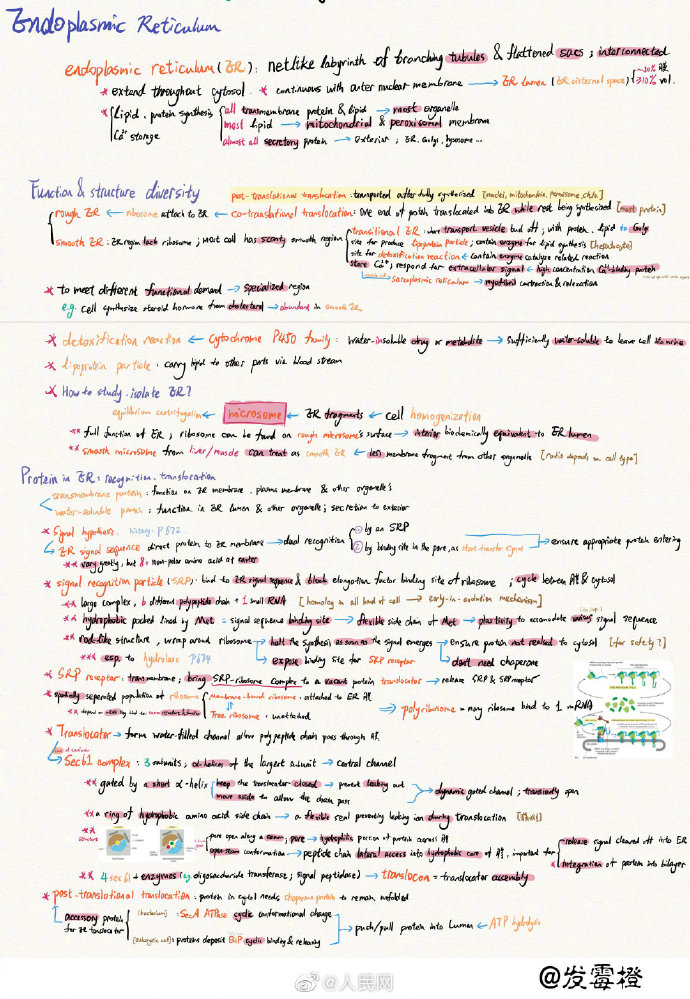 Endoplasmic Reticulum
endoplasmic reticulum (ER): netlike labyrinth of branching tubules & flattened sacs; interconnected
* extend throughout cytosol. * continuous with outer nuclear membrane → ER lumen (ER cisternal space)
* lipid. protein synthesis all transmembrane protein & lipid → most organelle
Ca²⁺ storage most lipid → mitochondrial & peroxisomal membrane
almost all secretory protein → exterior; ER. Golgi. lysosome...
Function & structure diversity post-translational translocation: transported after fully synthesized [nuclei, mitochondria, peroxisome, chlo.]
rough ER ← ribosome attach to ER ← co-translational translocation: one end of protein translocated into ER while rest being synthesized [most protein]
smooth ER: ER region lack ribosome; most cell has scanty smooth region transitional ER: where transport vesicle bud off; with protein. lipid to Golgi
site for produce lipoprotein particle; contain enzyme for lipid synthesis [hepatocyte]
site for detoxification reaction ← contain enzyme catalyze related reaction
store Ca²⁺; respond for extracellular signal ← high concentration Ca²⁺-binding protein
sarcoplasmic reticulum → myofibril contraction & relaxation
* to meet different functional demand → specialized region
e.g. cell synthesize steroid hormone from cholesterol → abundant in smooth ER
* detoxification reaction ← cytochrome P450 family: water-insoluble drug or metabolite → sufficiently water-soluble to leave cell into urine
* lipoprotein particle: carry lipid to other parts via blood stream
* How to study. isolate ER?
equilibrium centrifugation ← microsome ← ER fragments ← cell homogenization
** full function of ER; ribosome can be found on rough microsome's surface → interior biochemically equivalent to ER lumen
** smooth microsome from liver/muscle can treat as smooth ER ← less membrane fragment from other organelle [ratio depends on cell type]
Protein in ER: recognition. translocation
transmembrane protein: function on ER membrane. plasma membrane & other organelle's
water-soluble protein: function in ER lumen & other organelle; secretion to exterior
* Signal hypothesis. history: P672 ① by an SRP
ER signal sequence direct protein to ER membrane → dual recognition ② by binding site in the pore, as start-transfer signal → ensure appropriate protein entering
** vary greatly, but 8+ non-polar amino acid at center
* signal recognition particle (SRP): bind to ER signal sequence & block elongation factor binding site of ribosome; cycle between ER & cytosol
** large complex, 6 different polypeptide chain + 1 small RNA [homolog in all kind of cell → early-in-evolution mechanism]
** hydrophobic pocket lined by Met = signal sequence binding site → flexible side chain of Met → plasticity to accomodate various signal sequence
** rod-like structure, wrap around ribosome hold the synthesis as soon as the signal emerges → ensure protein not realsed to cytosol [for safety?]
*** esp. to hydrolase P679 expose binding site for SRP receptor don't need chaperone
* SRP receptor: transmembrane; bring SRP-ribosome complex to a vacant protein translocator → release SRP & SRP receptor
* spatially seperated population of ribosome Membrane-bound ribosome: attached to ER
Free ribosome: unattached → polyribosome = many ribosome bind to 1 mRNA
* Translocator → form water-filled channel allow polypeptide chain pass through
Sec61 complex: 3 subunits; α-helices of the largest subunit → central channel
** gated by a short α-helix keep the translocator closed → prevent leaking out
move aside to allow the chain pass → dynamic gated channel; transiently open
** a ring of hydrophobic amino acid side chain → a flexible seal preventing leaking ion during translocation
** structure pore open along a seam; pore → hydrophilic portion of protein across
open seam conformation → peptide chain lateral access into hydrophobic core of, important for release signal cleaved off into ER
integration of protein into bilayer
** 4 sec61 + enzymes (eg. oligosaccharide transferase; signal peptidase) → translocon = translocator assembly
* post-translational translocation: protein in cytosol needs chaperone protein to remain unfolded
accessory protein [bacterium]: SecA ATPase cyclic conformational change
for ER translocator [eukaryotic cell]: proteins deposit BiP cyclic binding & releasing → push/pull protein into Lumen ← ATP hydrolysis
@人民网
@发霉橙